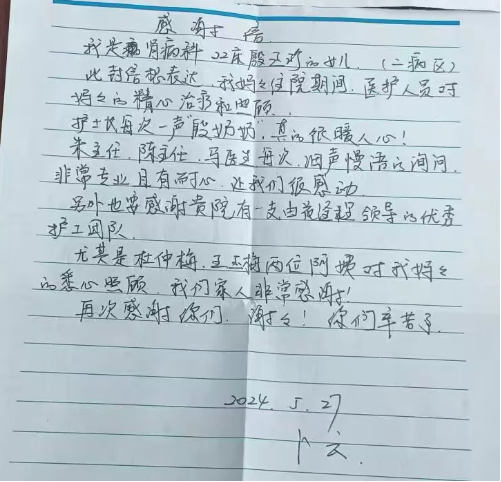 感谢信
我是肾病科22床殷玉珍的女儿.(二病区)
此封信想表达,我妈々住院期间,医护人员对
妈々的精心治疗和照顾.
护士长每次一声"殷奶奶",真的很暖人心!
朱主任,陈主任,马医生每次,细声慢语的询问,
非常专业且有耐心,让我们很感动.
另外也要感谢贵院,有一支由领导的优秀
护工团队.
尤其是杜仲梅,王玉梅两位阿姨对我妈々
的悉心照顾,我们家人非常感谢!
再次感谢你们.谢々!你们辛苦了.
2024.5.27
卜云.